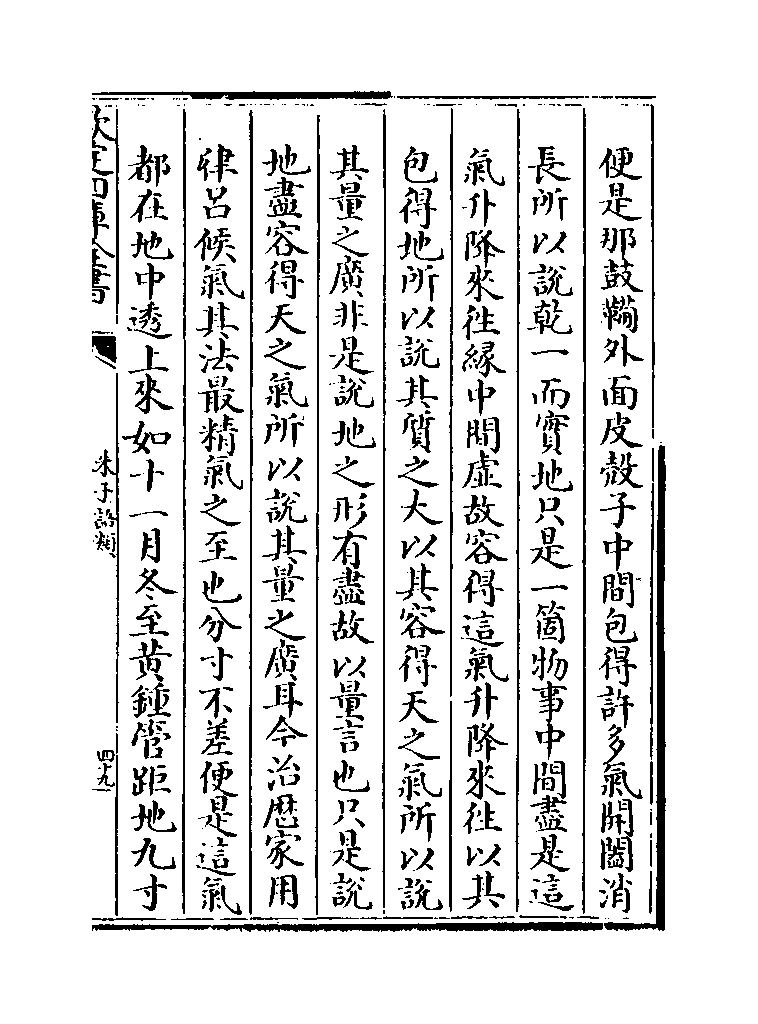 便是那鼓鞴外面皮殼子中間包得許多氣開闔消
長所以說乾一而實地只是一箇物事中間盡是這
氣升降來往緣中間虛故容得這氣升降來往以其
包得地所以説其質之大以其容得天之氣所以説
其量之廣非是說地之形有盡故以量言也只是說
地盡容得天之氣所以說其量之廣耳今治歴家用
律呂候氣其法最精氣之至也分寸不差便是這氣
都在地中透上來如十一月冬至黄鍾管距地九寸
欽定四庫全書
朱子語類